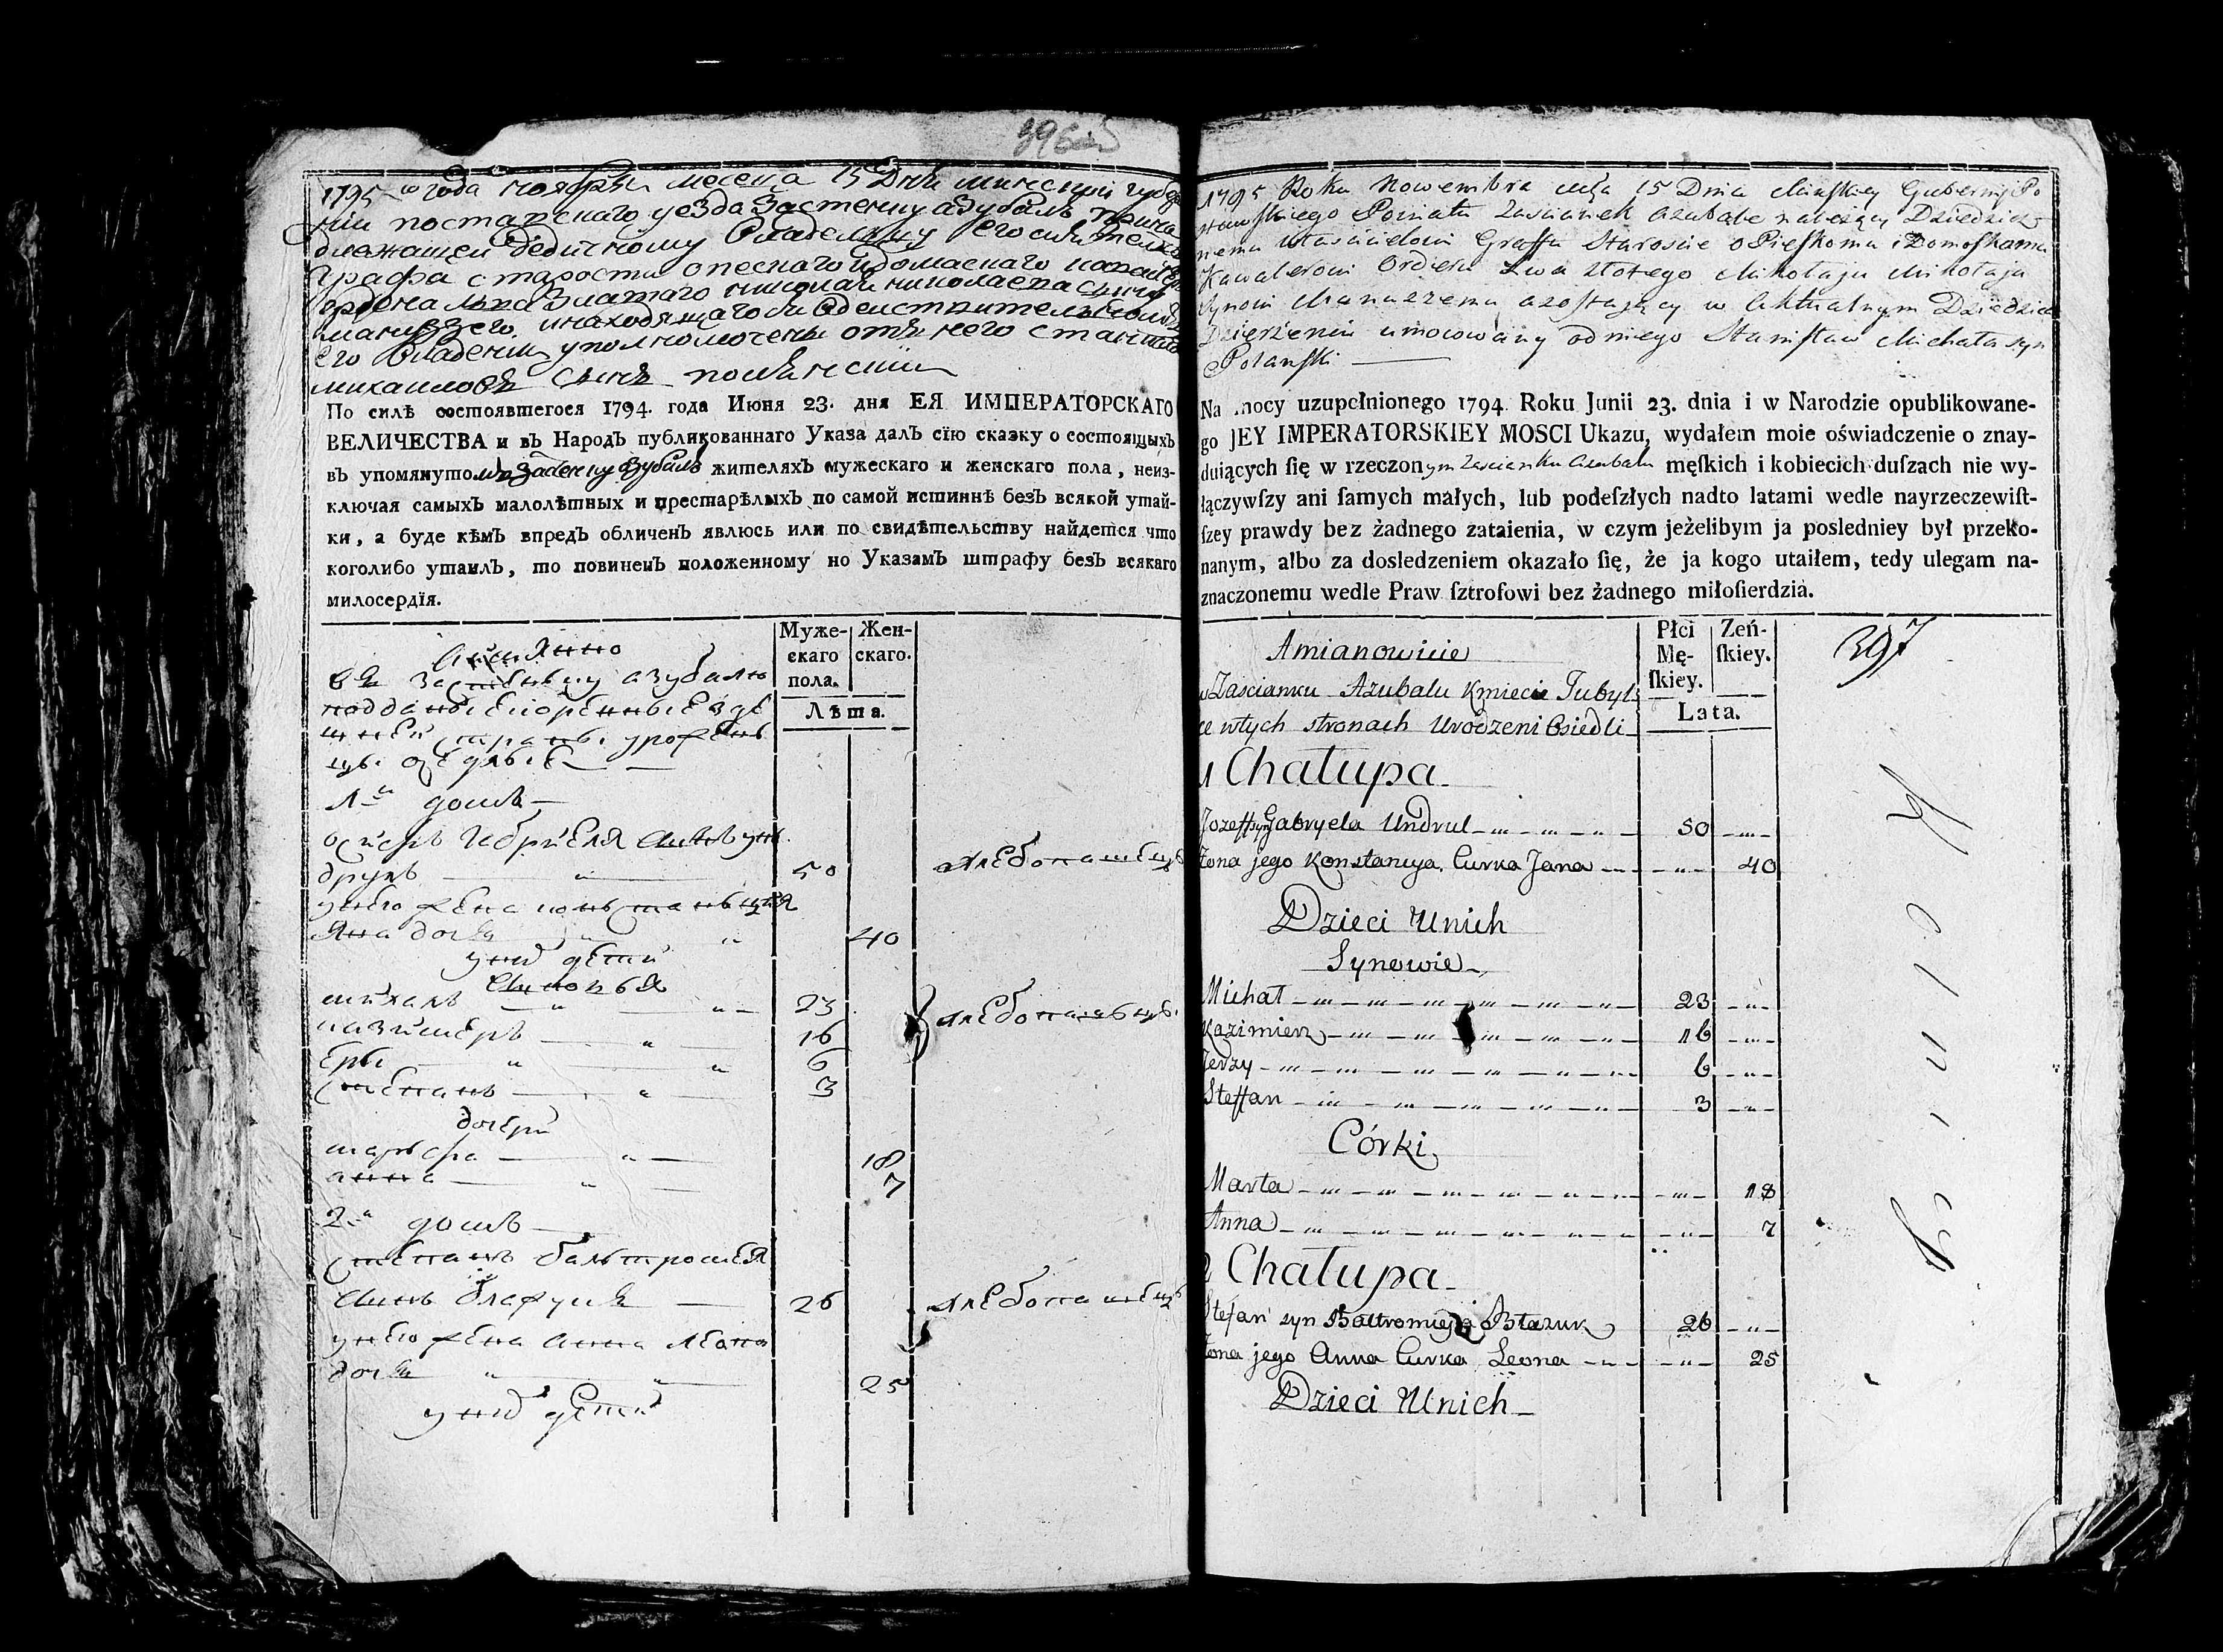 1795 го года ноября месеца 15 Дня минской губер
нии поставскаго уезда Застенку азубалъ прина
длежащей дедичному Владелцу его
Графа старосты опескаго идомаскаго
ордена льва Златаго николая николаева сына
мануззего инаходящагося вдействителномъ
его Владении уполномочены отъ него станислав
михаиловъ сынъ полянсшии
По силѣ состоявшегося 1794. года Июня 23. дня ЕЯ ИМПЕРАТОРСКАГО
ВЕЛИЧЕСТВА и въ Народъ публикованнаго Указа далъ сїю сказку о состоящыхъ
въ упомянутомъ застенку азубалъ жителяхъ мужескаго и женскаго пола, неиз-
ключая самыхъ малолѣтныхъ и престарѣлыхъ по самой истиннѣ безъ всякой утай-
ки, а буде кѣмъ впредъ обличенъ явлюсь или по свидѣтельству найдется что
коголибо утаилъ, то повиненъ положенному но Указамъ штрафу безъ всякаго
милосердїя.
Муже-
скаго
пола.
Жен-
скаго.
Лѣта.
въ застенку азубалю
подданые коренные зде
шней страны урожен
цы оседлые
1-й домъ
осипъ габриеля сынъ ун
друль 50
унего жена констанцыя
Яна дочь 40
уних дети
сыновья
михалъ 23
казимеръ 16
еры 6
степанъ 3
дочери
марьфа 18
анна 7
2-й домъ
степанъ бальтромея
сынъ блажукъ 26
унего жена анна леона
дочь 25
уних дети
1795 Roku Nowembra 15 Dnia Minskiey Guberniji Po
stawskiego Powiatu Zascianek Azubale należący Dziedzicz
nemu Właścicielowi Graffu Staroscie oPieskomu i Domoskamu
Kawalerowi Orderu Lwa złotego Mikołaju Mikołaja
Synowi Manuzzemu azostający w Aktualnym Dziedzicz
Dzierżeniu umocowany odniego Stanisław Michała syn
Polanski
Na mocy uzupełnionego 1794. Roku Junii 23. dnia i w Narodzie opublikowane-
go JEY IMPERATORSKIEY MOSCI Ukazu, wydałem moie oświadczenie o znay-
duiących ſię w rzeczonym Zascianku Azubalu męſkich i kobiecich duſzach nie wy-
łączywſzy ani ſamych małych, lub podeſzłych nadto latami wedle nayrzeczewiſt-
ſzey prawdy bez żadnego zataienia, w czym jeżelibym ja posledniey był przeko-
nanym, albo za dosledzeniem okazało ſię, że ja kogo utaiłem, tedy ulegam na-
znaczonemu wedle Praw ſztrofowi bez żadnego miłoſierdzia.
Płci
Mę-
ſkiey.
Zeń-
ſkiey.
Lata.
397
Amianowicie
w Zascianku Azubalu Kmiecie Tubyl
ce wtych stronach Urodzeni Osiedli
1 Chałupa
Jozeff syn Gabryela Undrul 50
Żona jego Konstancya Curka Jana 40
Dzieci Unich
Synowie
Michał 23
Kazimierz 16
Jerzy 6
Steffan 3
Córki
Marta 18
Anna 7
2 Chałupa
Stefan syn Bałtromieja Błazuk 26
Żona jego Anna Curka Leona 25
Dzieci Unich